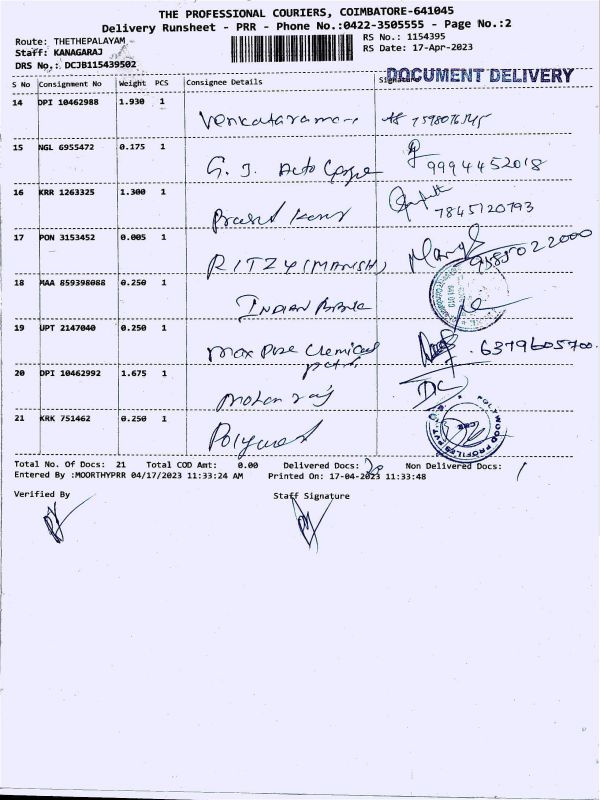 THE PROFESSIONAL COURIERS, COIMBATORE-641045
Delivery Runsheet - PRR - Phone No.:0422-3505555 - Page No.:2
Route: THETHEPALAYAM
RS No.: 1154395
Staff: KANAGARAJ
RS Date: 17-Apr-2023
DRS No.: DCJB115439502
DOCUMENT DELIVERY
S No Consignment No Weight PCS Consignee Details Signature
14 DPI 10462988 1.930 1
Venkataraman 7598076545
15 NGL 6955472 0.175 1
G. J. Auto 9994452018
16 KRR 1263325 1.300 1
7845120793
17 PON 3153452 0.005 1
RITZY (MANISH) 9585022000
18 MAA 859398088 0.250 1
INDIAN BANK
19 UPT 2147040 0.250 1
Max Pure Chemical 6379605700.
20 DPI 10462992 1.675 1
Mohan raj DC
21 KRK 751462 0.250 1
Polywood
POLYWOOD PROFILES PVT
Total No. Of Docs: 21 Total COD Amt: 0.00 Delivered Docs: 20 Non Delivered Docs: 1
Entered By :MOORTHYPRR 04/17/2023 11:33:24 AM Printed On: 17-04-2023 11:33:48
Verified By Staff Signature